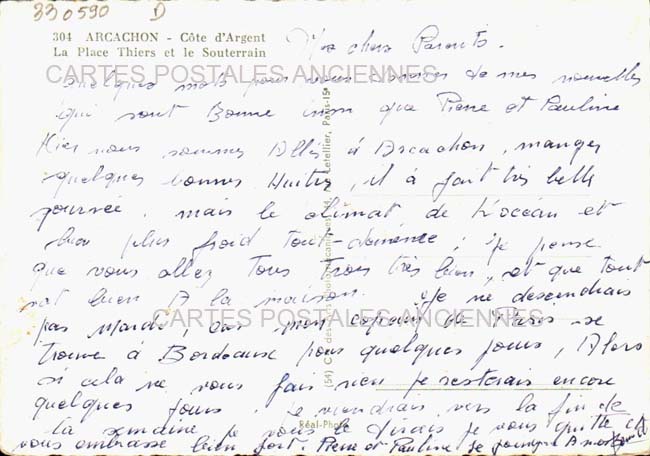 330590 D
304 ARCACHON - Côte d'Argent
La Place Thiers et le Souterrain
Mes chers Parents.
CARTES POSTALES ANCIENNES
Quelques mots pour vous donner de mes nouvelles
qui sont Bonne insi que Pierre et Pauline
Hier nous sommes Allés à Arcachon, manger
quelques bonnes Huitre, il à fait très belle
journée, mais le climat de L'océan et
bien plus froid tout-de même, je pense
que vous allez Tous Trois très bien, et que tout
vat bien A la maison. Je ne descendrais
pas Mardi, car mon copain de Paris se
CARTES POSTALES ANCIENNES
trouve à Bordeaux pour quelques jours, Alors
si cela ne vous fais rien je resterais encore
quelques jours. Je viendrais vers la fin de
la semaine je vous le dirais je vous quitte et
vous embrasse bien fort. Pierre et Pauline se
Réal-Photo
Letellier, Paris-15e